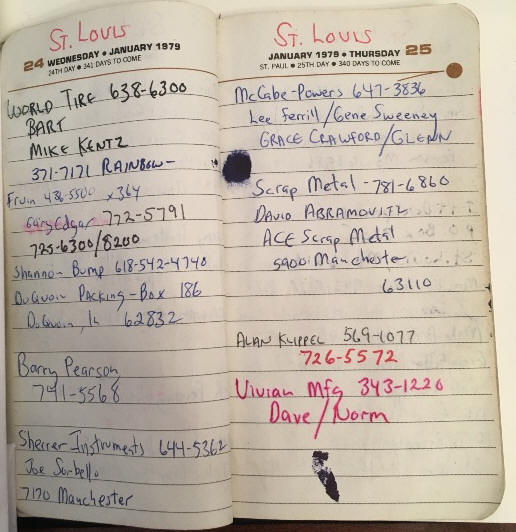 St. Louis
24 WEDNESDAY • JANUARY 1979
24TH DAY • 341 DAYS TO COME
WORLD TIRE 638-6300
BART
MIKE KENTZ
371-7171 RAINBOW-
From 436-5500 x364
Gary Edgar 772-5791
725-6300/8200
Shannon Bump 618-542-4740
DuQuoin Packing-Box 186
DuQuoin, IL 62832
Barry Pearson
741-5568
Sherrer Instruments 644-5362
Joe Sorbello
7170 Manchester
St. Louis
JANUARY 1979 • THURSDAY 25
ST. PAUL • 25TH DAY • 340 DAYS TO COME
McCabe-Powers 647-3836
Lee Ferrill/Gene Sweeney
GRACE CRAWFORD/GLENN
Scrap Metal-781-6860
DAVID ABRAMOVITZ
ACE Scrap Metal
5900 Manchester
63110
ALAN KLIPPEL 569-1077
726-5572
Vivian Mfg 343-1220
Dave/Norm